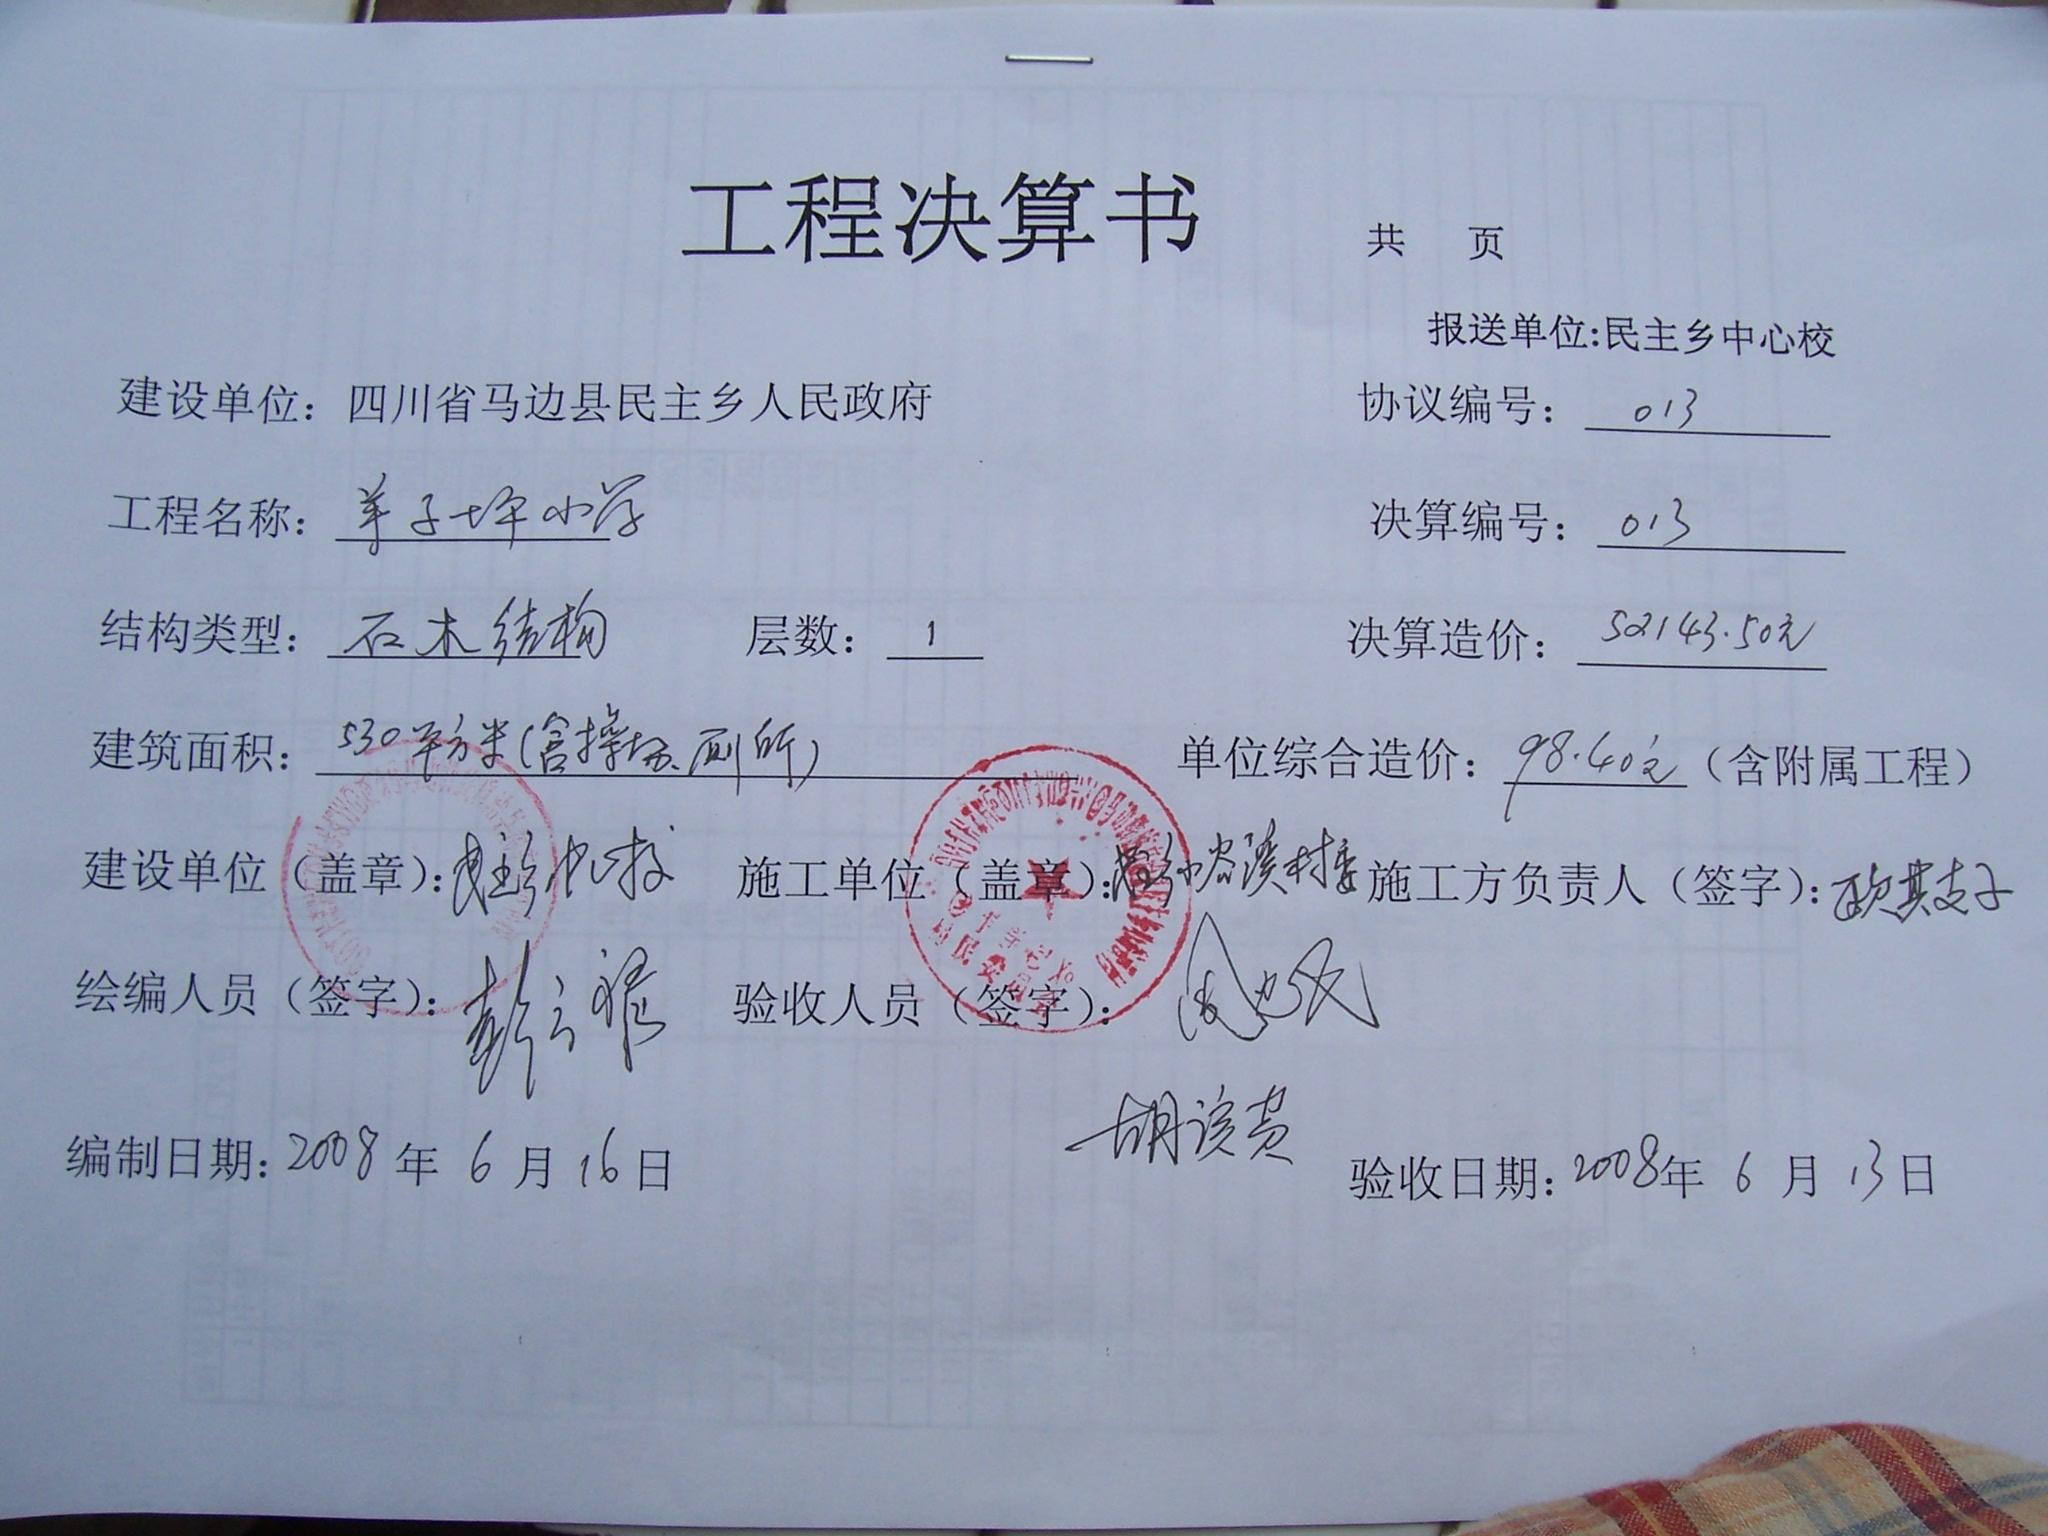 工程决算书 共 页
报送单位:民主乡中心校
建设单位：四川省马边县民主乡人民政府 协议编号：013
工程名称：羊子坪小学 决算编号：013
结构类型：石木结构 层数：1 决算造价：52143.50元
建筑面积：530平方米(含操场、厕所) 单位综合造价：98.40元（含附属工程）
建设单位（盖章）：民主乡中心校 施工单位（盖章）：民主乡小谷溪村委 施工方负责人（签字）：欧其支子
绘编人员（签字）： 验收人员（签字）：
编制日期：2008年6月16日 验收日期：2008年6月13日